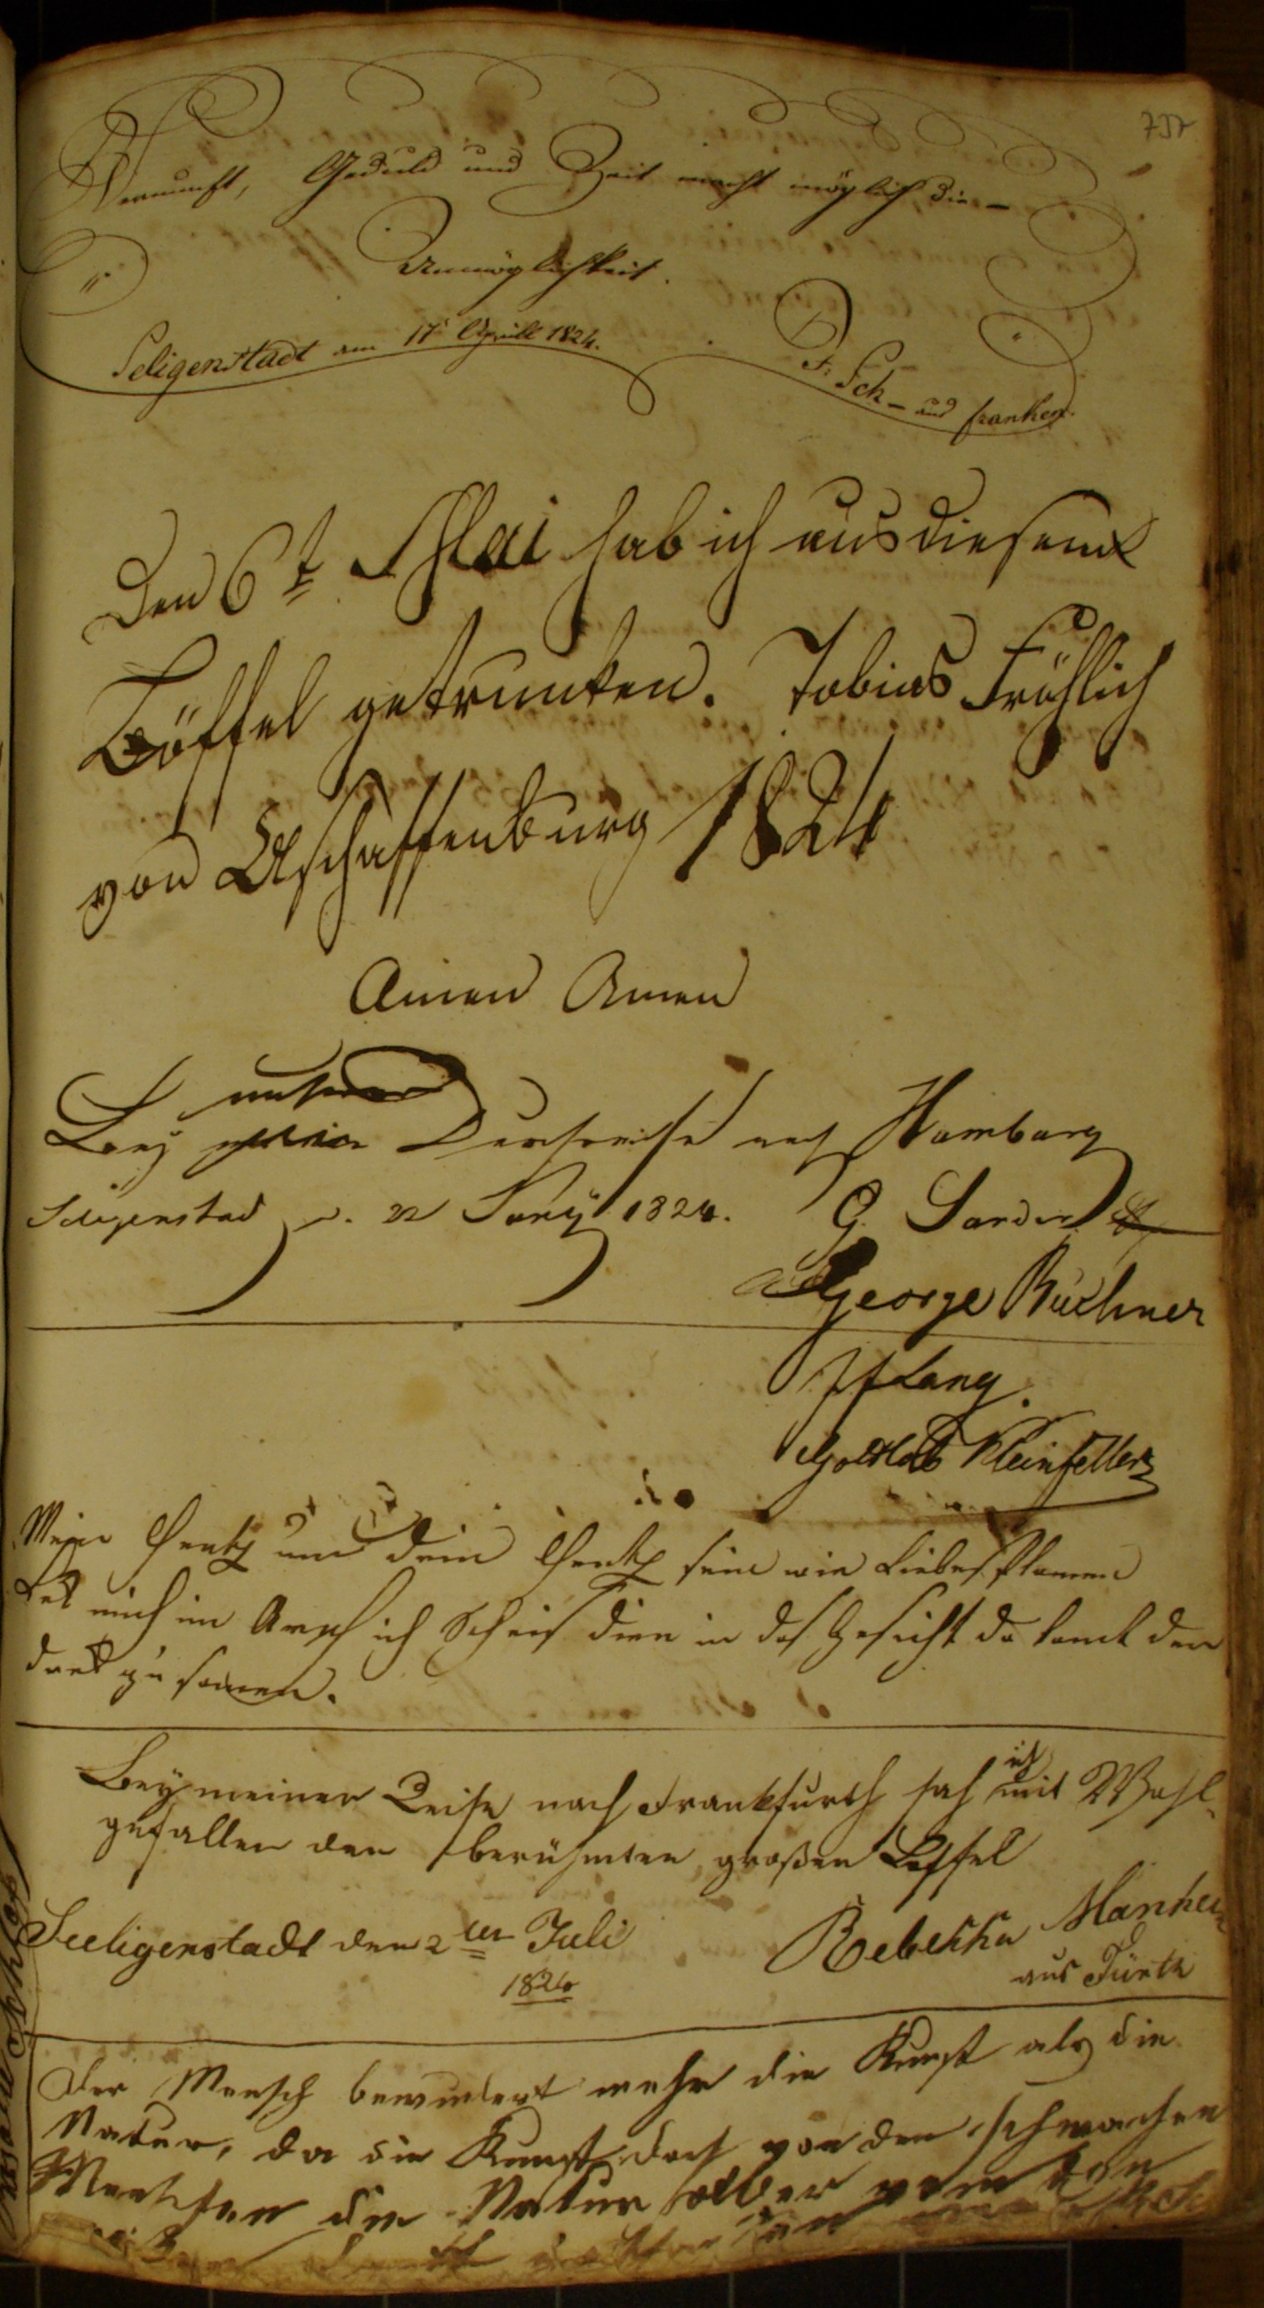 757
Vernunft, Geduld und Zeit macht möglich die
Unmöglichkeit.
Seligenstadt am 17 Aprill 1824.
F: Sch- aus franken.
Den 6t Mai hab ich aus diesem
Löffel getrunken. Tobias Fröhlich
von Aschaffenburg 1824
Amen Amen
unserer
Bey Durchreise nach Hamburg
Seligenstad d. 22 Juny 1824. G.
George Büchner
Lang
Gottlob Kleinfeller
Mein Hertz und dein Hertz sein wie Liebes flamen
Lek mich im Arsch ich Scheis dier in das Gesicht da komt der
drek zu samen.
Bey meiner Reise nach Frankfurth sah ich mit Wohl-
gefallen den berühmten großen Löffel
Seeligenstadt den 2ten Juli Rebekka
1824 aus Fürth
Der Mensch bewundert mehr die Kunst als die
Natur, da die Kunst doch von den schwachen
Menschen die Natur aber von